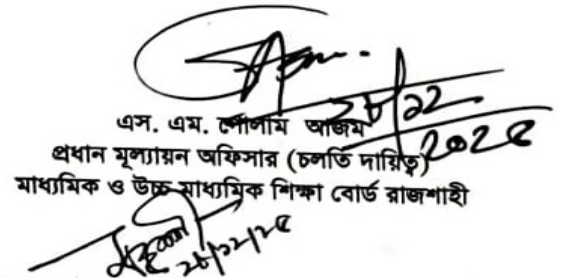 ২৮/১২
এস. এম. গোলাম আজম
২০২৫
প্রধান মূল্যায়ন অফিসার (চলতি দায়িত্ব)
মাধ্যমিক ও উচ্চ মাধ্যমিক শিক্ষা বোর্ড রাজশাহী
২৮/১২/২৫